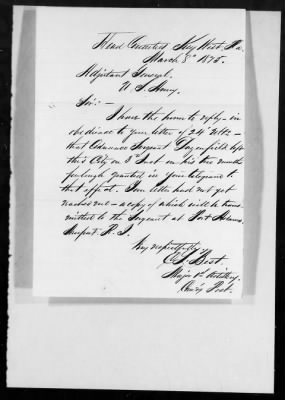 Head Quarters Key West, Fla.
March 8th 1876.
Adjutant General,
U. S. Army.
Sir:—
I have the honor to reply—in
obedience to your letter of 24th Ult:—
that Ordnance Sergeant left
this City on 3d Inst on his two months
furlough granted in your telegram to
that effect. Your letter had not yet
reached me—a copy of which will be trans-
mitted to the Sergeant at Fort Adams
Newport R. I.
Very respectfully
C. L. Best.
Major 1st Artillery.
Com'g Post.